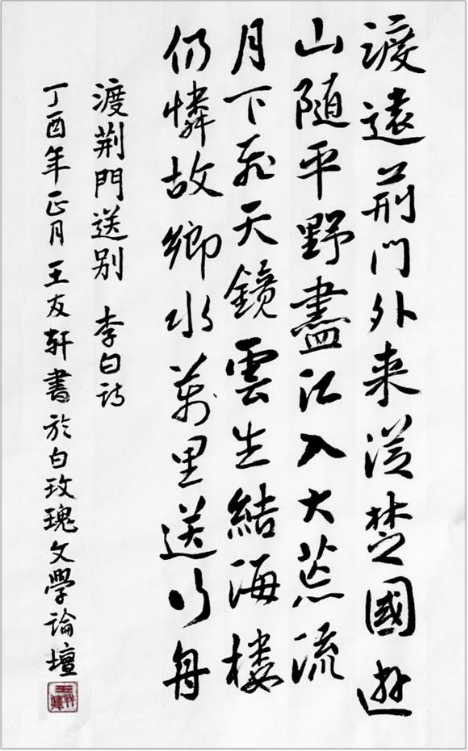 渡遠荆門外来從楚國遊
山随平野盡江入大荒流
月下飛天鏡雲生結海樓
仍憐故鄉水萬里送行舟
渡荆門送别 李白詩
丁酉年正月王友轩書於白玫瑰文學論壇